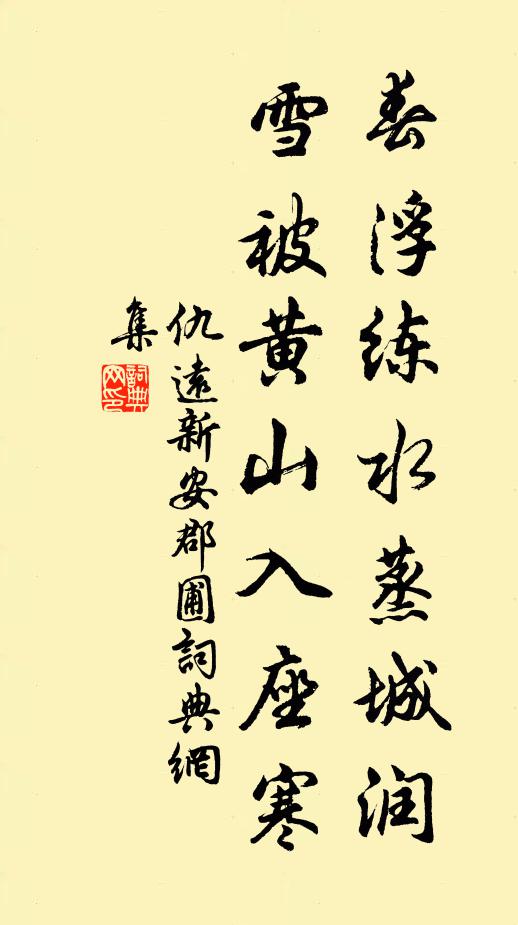 春浮练水蒸城润
雪被黄山入座寒
仇遠新安郡圃詞典網
集
詞典
网印